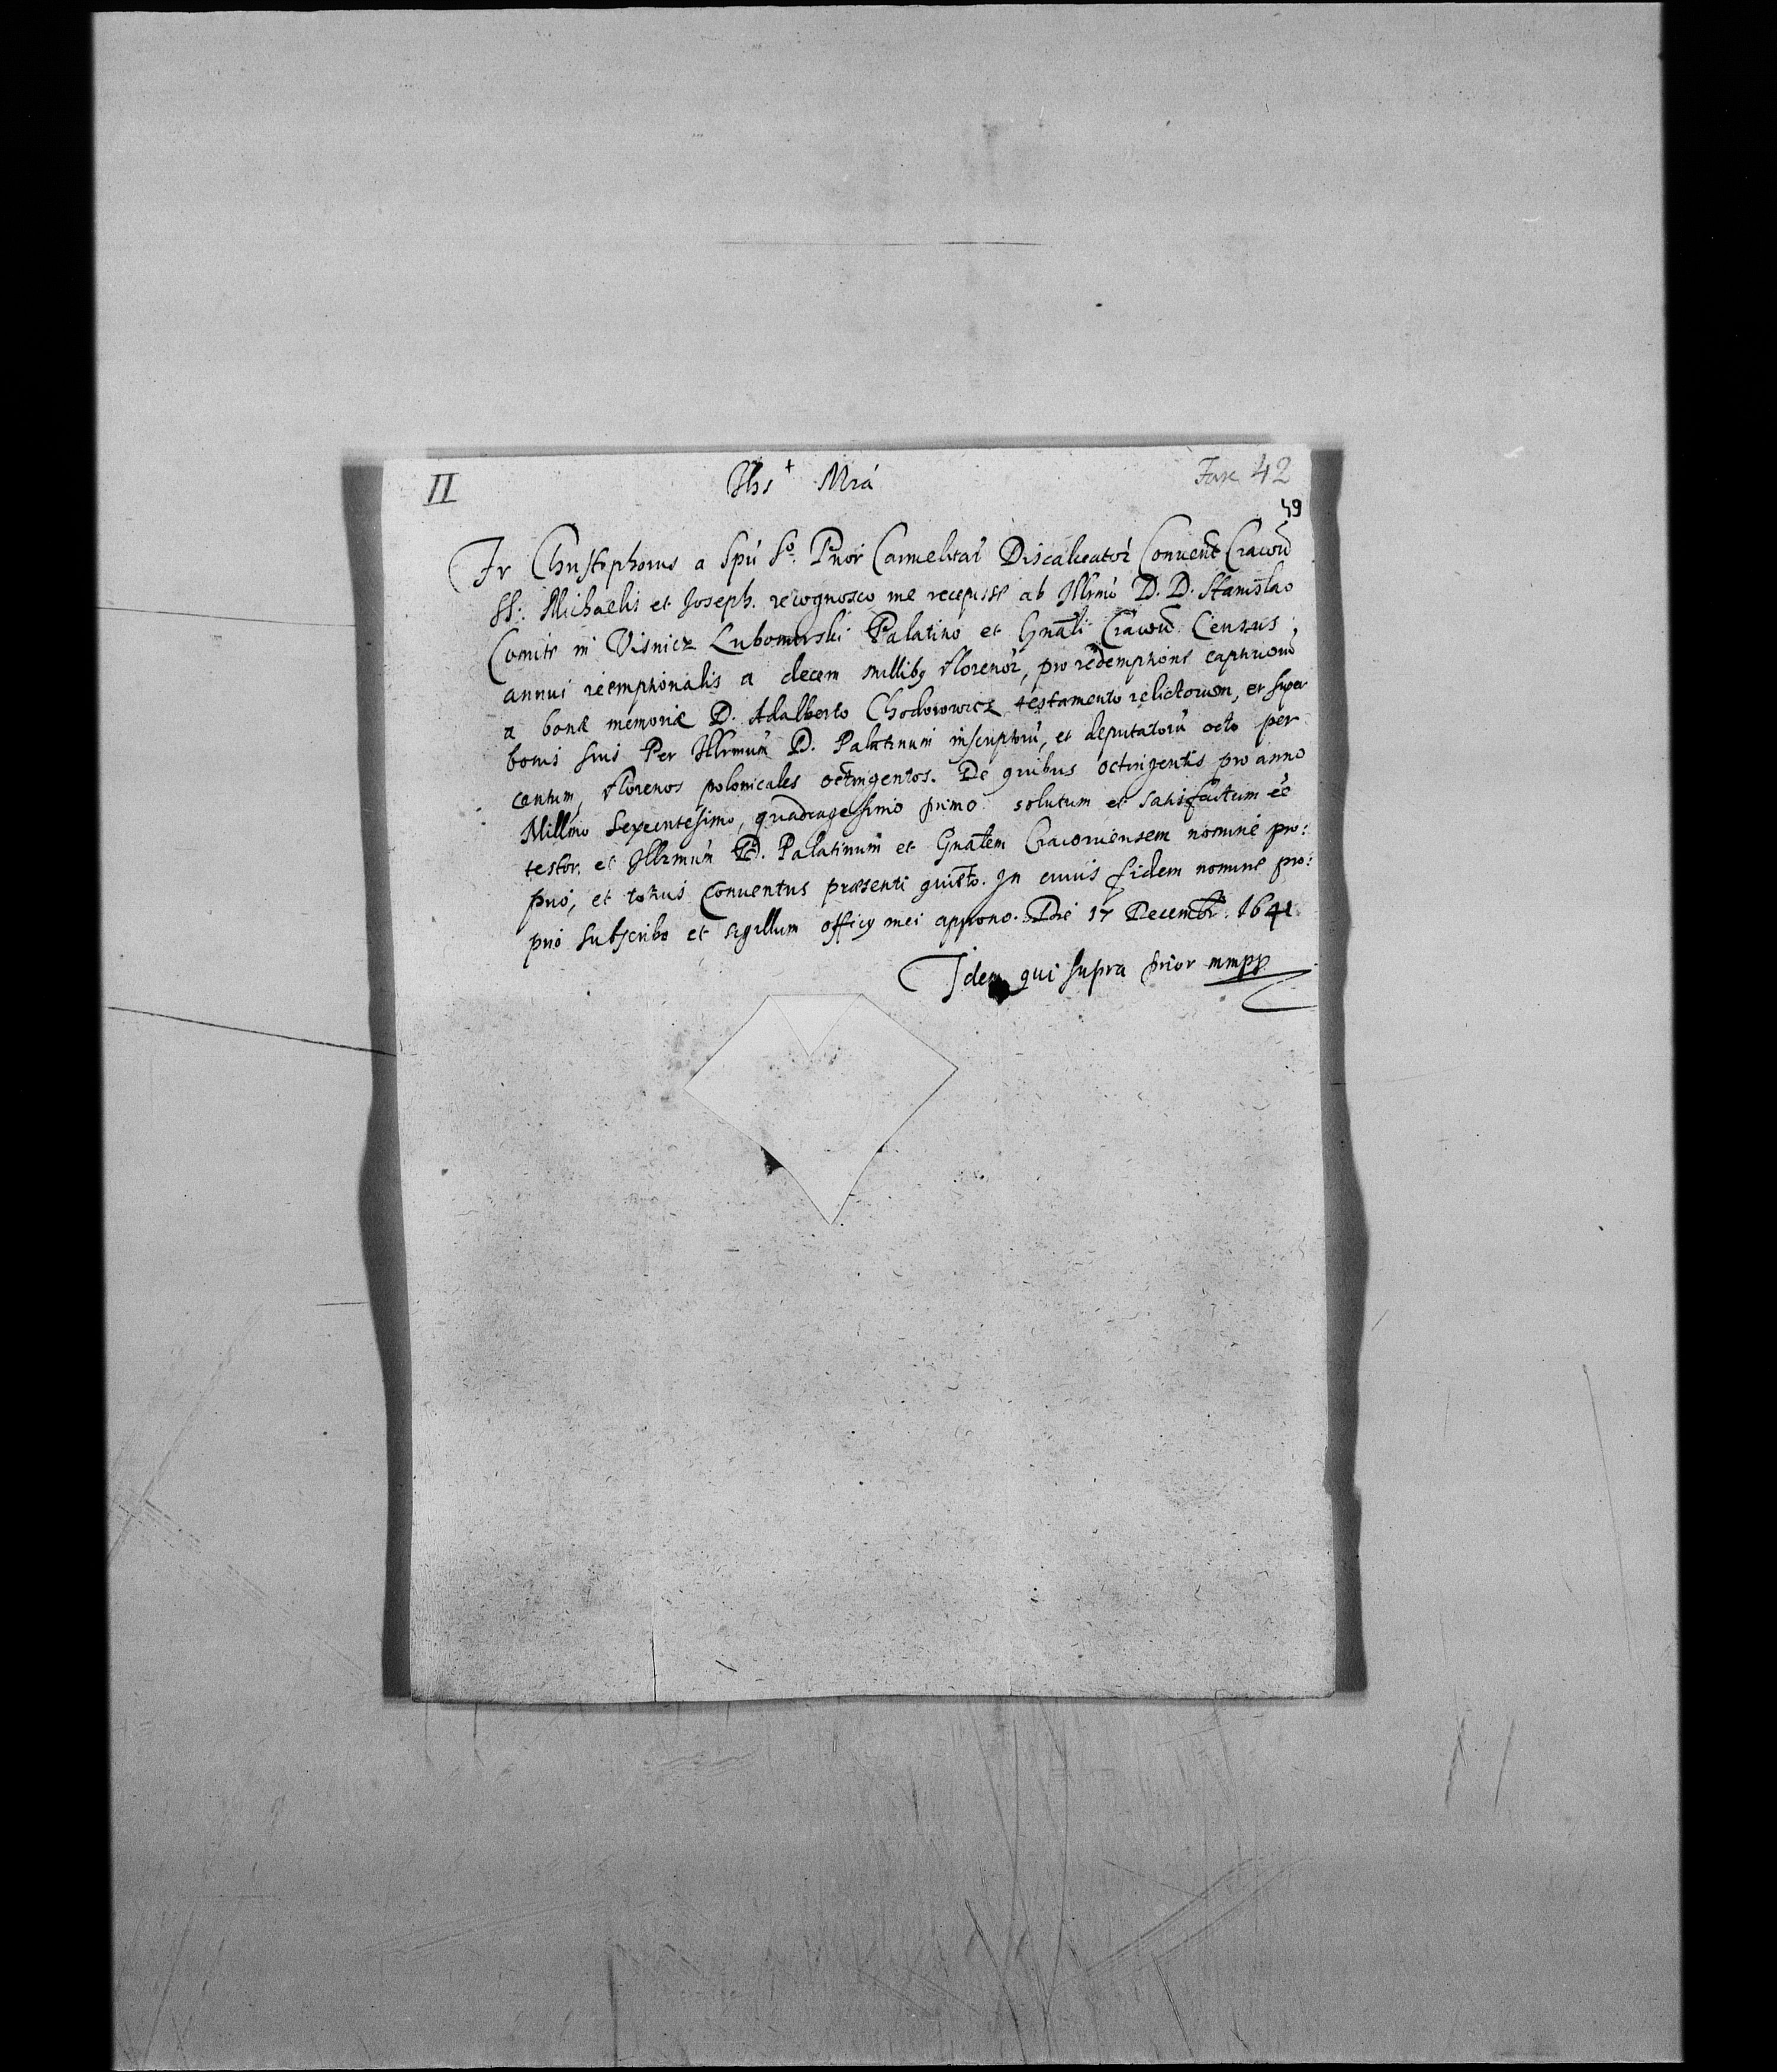 II Jhs + Mrá Fasc 42
49
Fr Christophorus a Spũ Sᵒ. Prior Carmelitaꝝ Discalceatoꝝ Conuent̃ Cracou̅
SS: Michaelis et Joseph. recognosco me recepisse ab Illrmó D. D. Stanislao
Comite in Visnicz Lubomirski Palatino et Gnãli Cracou̅ Census
annui reemptionalis a decem millibꝫ florenoꝝ, pro redemptione captiuoꝝ
a bonæ memoriæ D. Adalberto Chodorowicz testamento relictorum, et super
bonis suis Per Illrmum̃ D. Palatinum inscriptorũ, et deputatorũ octo per
centum, florenos polonicales octingentos. De quibus octingentis pro anno
Millmo Sexcentesimo, quadragesimo primo solutum et satisfactum eẽ
testor. et Illrmum̃ D. Palatinum et Gnãlem Cracouiensem nomine pro:
prió, et totius Conuentus præsenti quieto. In cuius fidem nomine pro:
prió subscribo et sigillum officij mei appono. Die 17 Decembr̃. 1641.
Idem qui supra prior mmpp